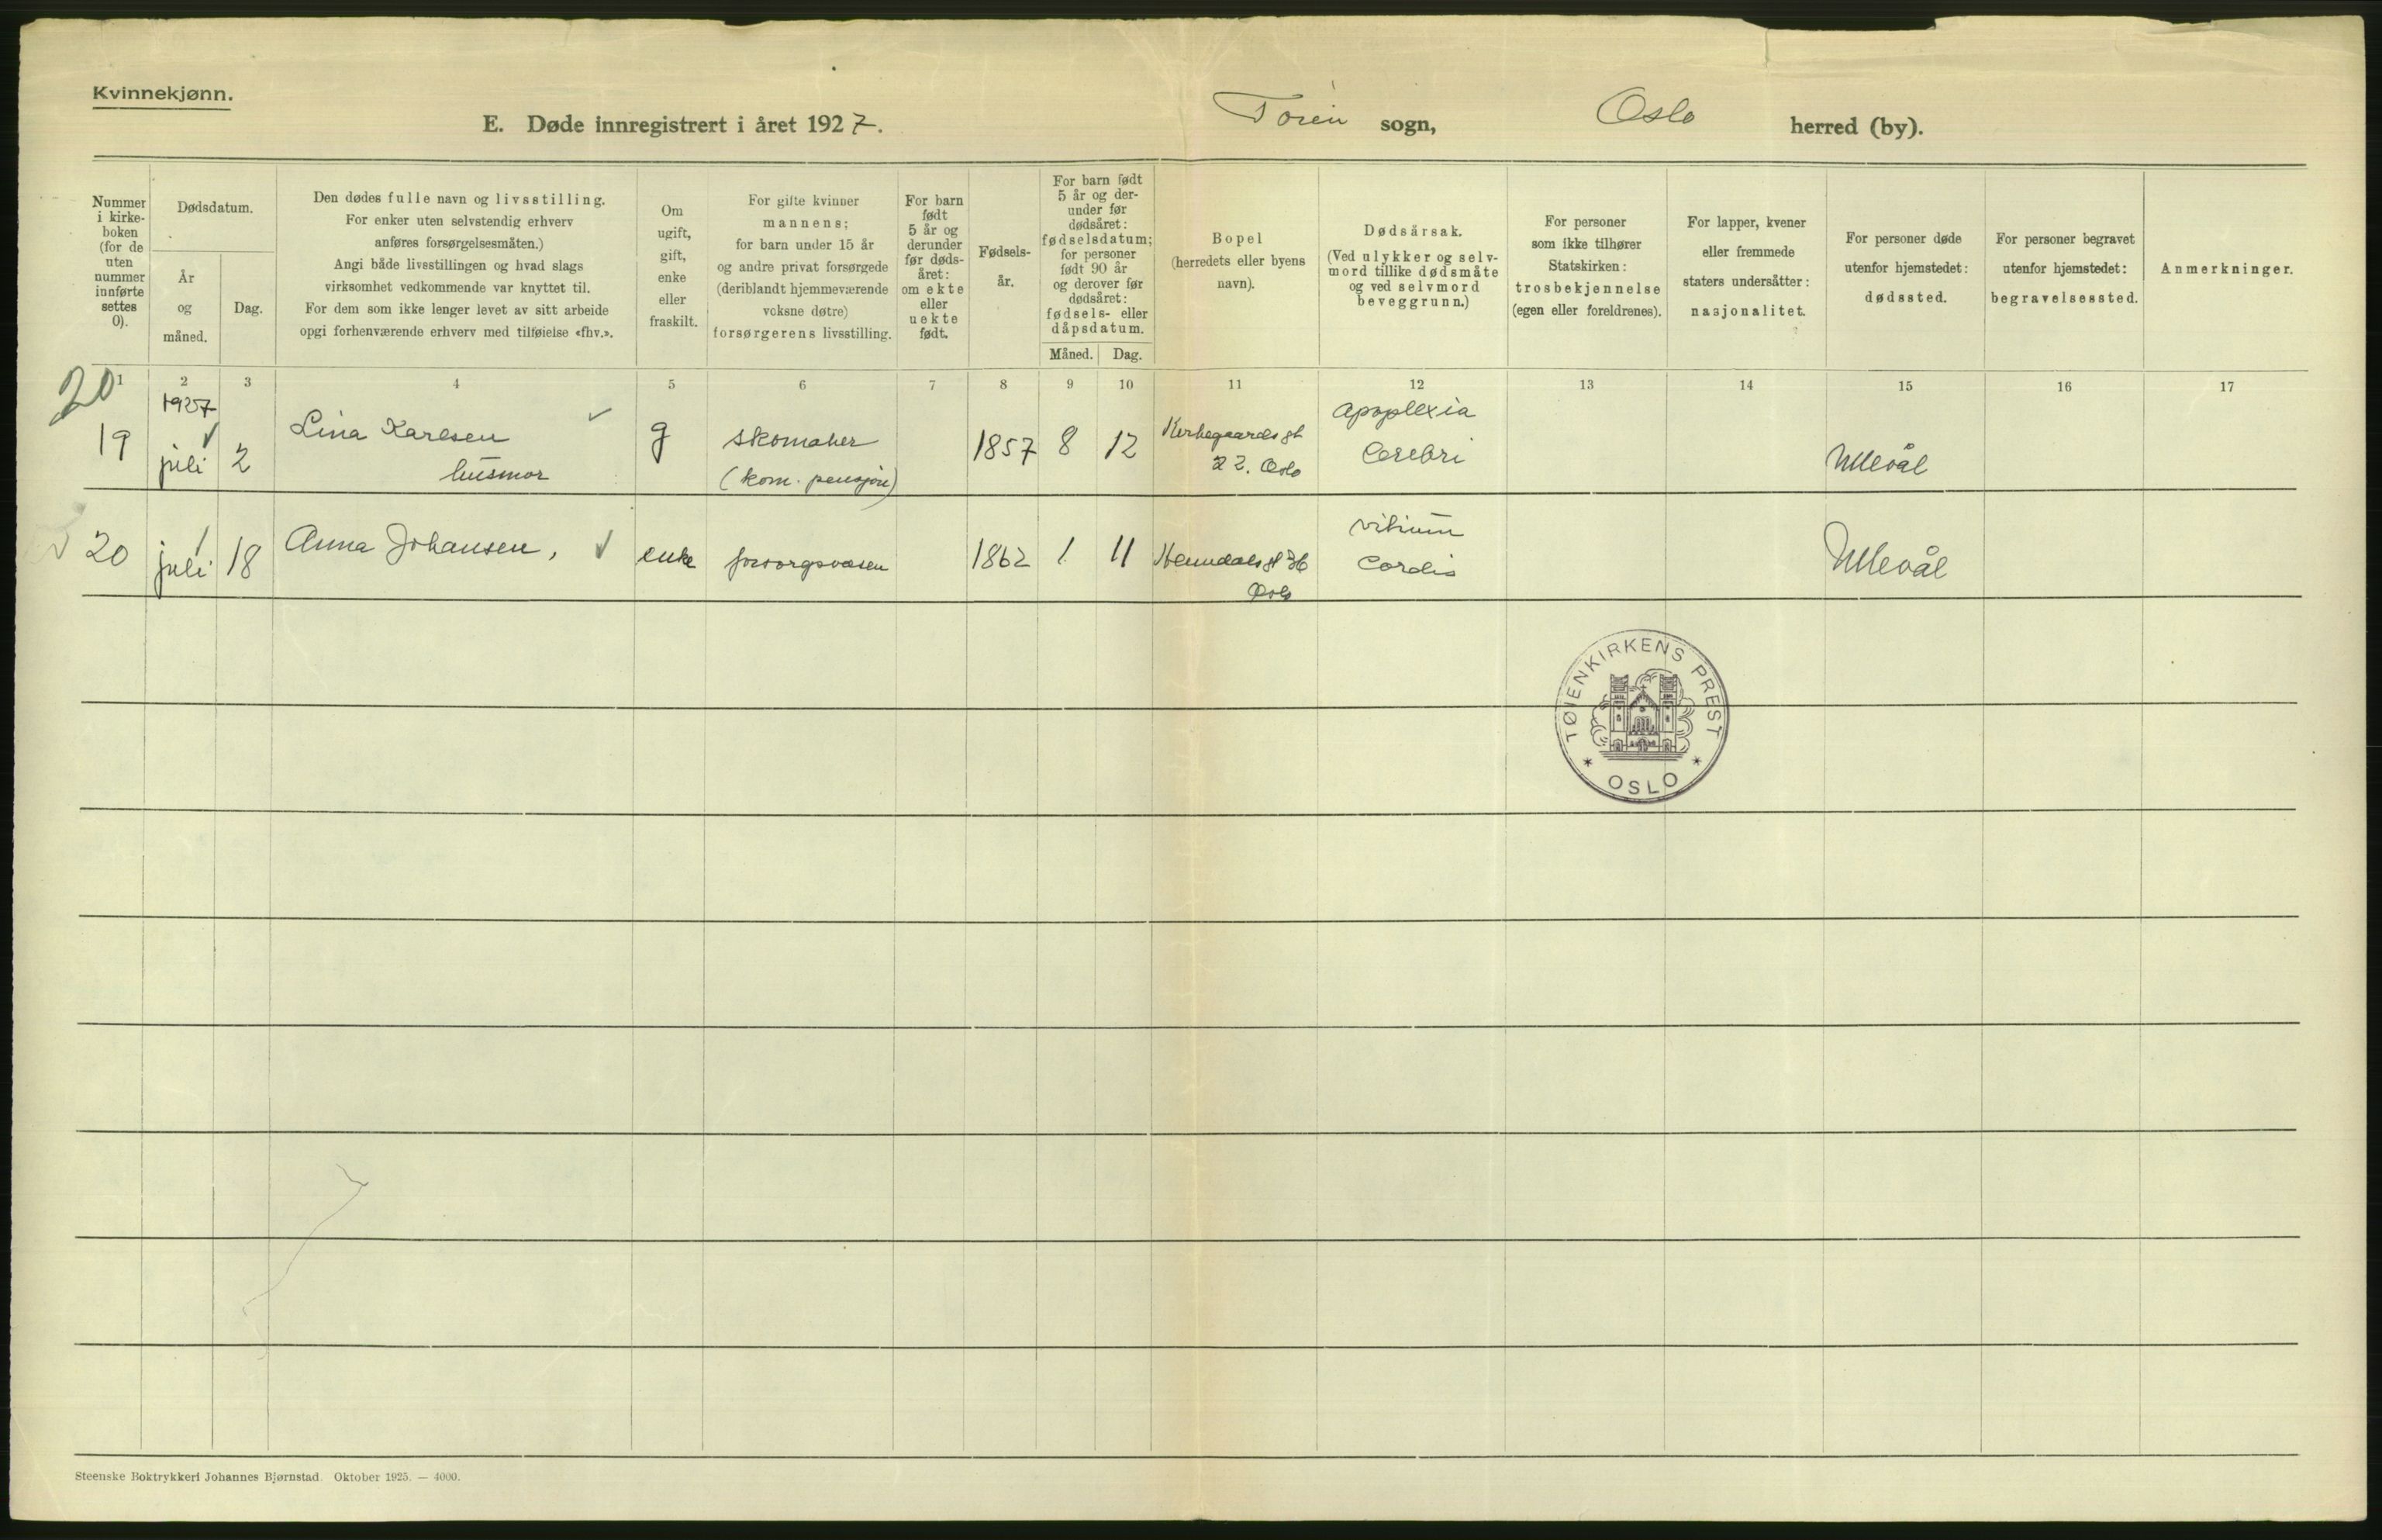 Kvinnekjønn.
E. Døde innregistrert i året 1927.
Tøien sogn, Oslo herred (by).
Nummer
i kirke-
boken
(for de
uten
nummer
innførte
settes
0).
Dødsdatum.
År
og
måned.
Dag.
Den dødes fulle navn og livsstilling.
For enker uten selvstendig erhverv
anføres forsørgelsesmåten.)
Angi både livsstillingen og hvad slags
virksomhet vedkommende var knyttet til.
For dem som ikke lenger levet av sitt arbeide
opgi forhenværende erhverv med tilføielse «fhv.».
Om
ugift,
gift,
enke
eller
fraskilt.
For gifte kvinner
mannens;
for barn under 15 år
og andre privat forsørgede
(deriblandt hjemmeværende
voksne døtre)
forsørgerens livsstilling.
For barn
født
5 år og
derunder
før døds-
året:
om ekte
eller
uekte
født.
Fødsels-
år.
For barn født
5 år og der-
under før
dødsåret:
fødselsdatum;
for personer
født 90 år
og derover før
dødsåret:
fødsels- eller
dåpsdatum.
Måned. Dag.
Bopel
(herredets eller byens
navn).
Dødsårsak.
(Ved ulykker og selv-
mord tillike dødsmåte
og ved selvmord
beveggrunn.)
For personer
som ikke tilhører
Statskirken:
trosbekjennelse
(egen eller foreldrenes).
For lapper, kvener
eller fremmede
staters undersåtter:
nasjonalitet.
For personer døde
utenfor hjemstedet:
dødssted.
For personer begravet
utenfor hjemstedet:
begravelsessted.
Anmerkninger.
1 2 3 4 5 6 7 8 9 10 11 12 13 14 15 16 17
20
19
1927
juli
2
Lina Karlsen
husmor
g
skomaker
(kom. pensjon)
1857
8
12
Kirkegaards gt
22. Oslo
Apoplexia
Cerebri
Ullevål
20
juli
18
Anna Johansen,
enke
forsorgsvæsen
1862
1
11
Oslo
vitium
Cordis
Ullevål
TØIENKIRKENS PREST
* OSLO *
Steenske Boktrykkeri Johannes Bjørnstad. Oktober 1925. — 4000.